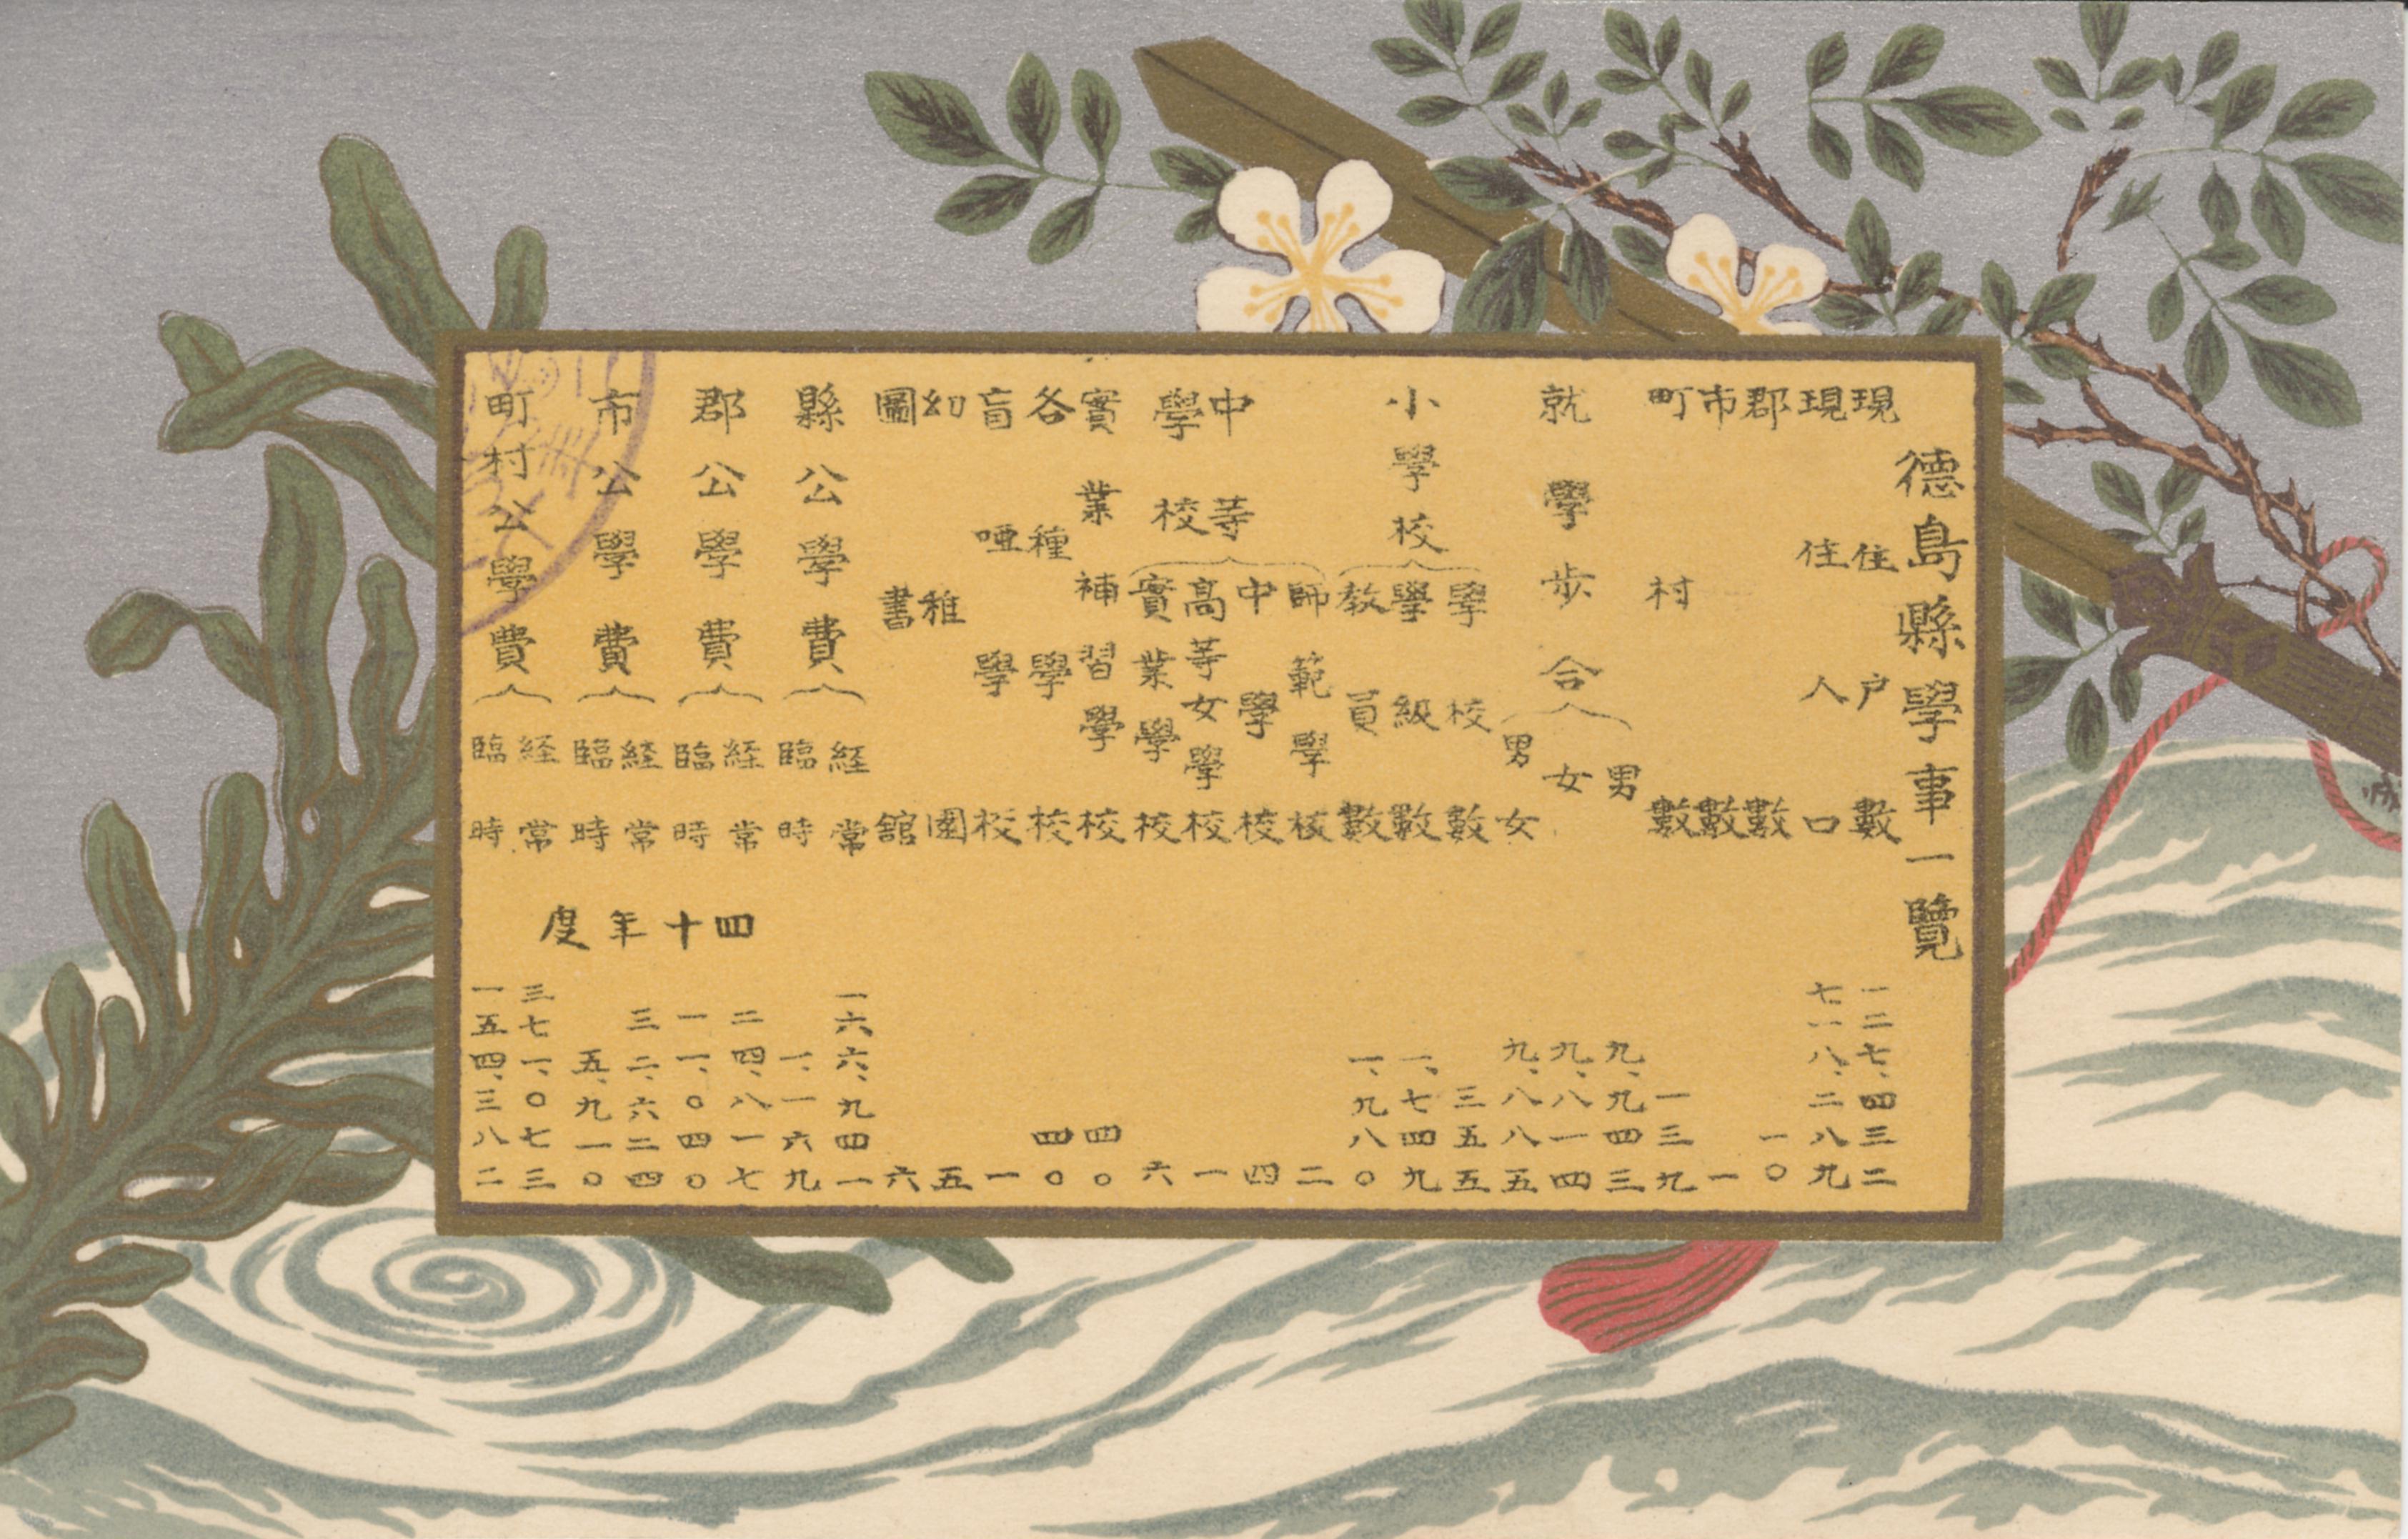 德島縣學事一覽
現住戸數 一二七、四三二
現住人口 七一八、二八九
郡數 一〇
市數 一
町村數 一三九
就學歩合
男 九、九四三
女 九、八一四
男女 九、八八五
小學校
學校數 三五五
學級數 一、七四九
教員數 一、九八〇
中等學校
師範學校 二
中學校 四
高等女學校 一
實業學校 六
實業補習學校 四〇
各種學校 四〇
盲啞學校 一
幼稚園 五
圖書館 六
縣公學費
経常 一六六、九四一
臨時 一、一六九
郡公學費
経常 二四、八一七
臨時 一一、〇四〇
市公學費
経常 三二、六二四
臨時 五、九一〇
町村公學費
経常 三七一、〇七三
臨時 一五四、三八二
四十年度